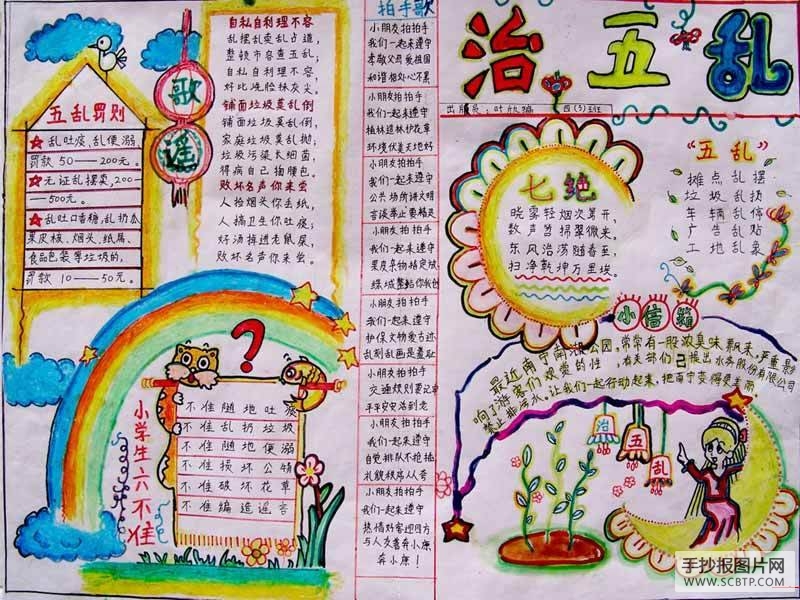 治五乱
四(5)班
五乱罚则
乱吐痰、乱便溺,
罚款50——200元。
无证乱摆卖,200
——500元。
乱吐口香糖,乱扔瓜
果皮核、烟头、纸屑、
食品包装等垃圾的,
罚款10——50元。
歌谣
自私自利理不容
乱摆乱卖乱占道,
整顿市容查五乱;
自私自利理不容
好比烧脸抹灰尘。
铺面垃圾莫乱倒
铺面垃圾莫乱倒,
家庭垃圾莫乱抛;
垃圾污染太细菌,
得病自己掏腰包。
败坏名声你来当
人抬烟头你丢纸,
人搞卫生你吐痰;
好汤掉进老鼠屎,
败坏名声你来当。
拍手歌
小朋友拍拍手
我们一起来遵守
孝敬父母爱祖国
和谐相处心不累
小朋友拍拍手
我们一起来遵守
植林造林护花草
环境优美天地好
小朋友拍拍手
我们一起来遵守
公共场所讲文明
小朋友拍拍手
我们一起来遵守
果皮杂物指定放
小朋友拍拍手
我们一起来遵守
护保文物爱古迹
乱刻乱画是羞耻
小朋友拍拍手
交通规则要记牢
平平安安活到老
小朋友拍拍手
我们一起来遵守
自觉排队不抢插
礼貌秩序人人夸
小朋友拍拍手
我们一起来遵守
热情好客迎四方
与人友善奔小康
奔小康!
七绝
晓雾轻烟次第开,
数声笃捐翠微来。
东风浩荡随春至,
扫净乾坤万里埃。
“五乱”
摊点乱摆
垃圾乱扔
车辆乱停
广告乱贴
工地乱象
小信箱
最近南宁南湖公园,常常有一股浓臭味飘来,严重影
响了游客们观赏的性,有关部门已提出水务股份有限公司
禁止排污水,让我们一起行动起来,把南宁变得更美丽。
治五乱
?
小学生六不准
不准随地吐痰
不准乱扔垃圾
不准随地便溺
不准损坏公物
不准破坏花草
不准编造谣言
手抄报图片网
WWW.SCBTP.COM